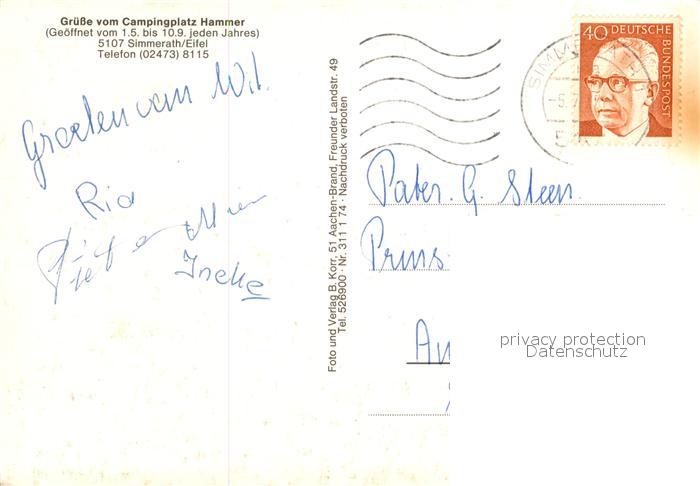 Grüße vom Campingplatz Hammer
(Geöffnet vom 1.5. bis 10.9. jeden Jahres)
5107 Simmerath/Eifel
Telefon (02473) 8115
Groeten van Wil.
Ria
Mien
Ineke
Foto und Verlag B. Korr, 51 Aachen-Brand, Freunder Landstr. 49
Tel. 526900 · Nr. 311 1 74 · Nachdruck verboten
40 DEUTSCHE
BUNDESPOST
Pater. G. Steen.
Prins
An
privacy protection
Datenschutz